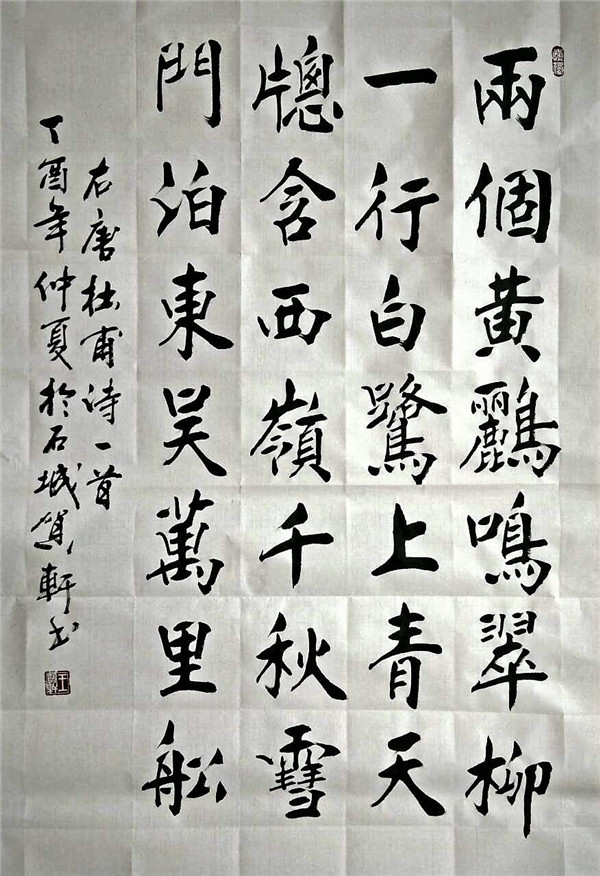 兩個黃鸝鳴翠柳
一行白鷺上青天
牕含西嶺千秋雪
門泊東吳萬里船
右唐杜甫诗一首
丁酉年仲夏於石城軒书